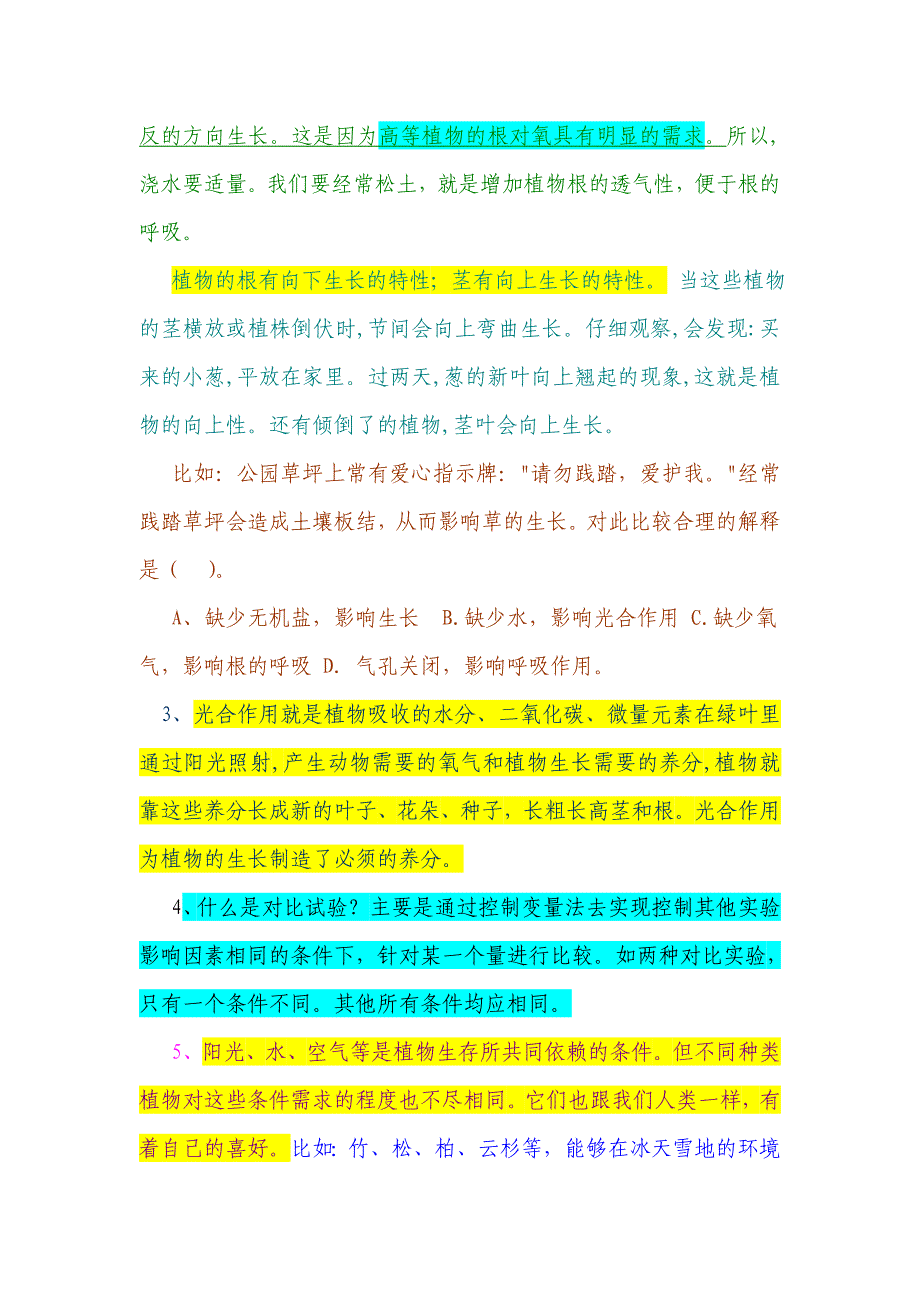 反的方向生长。这是因为高等植物的根对氧具有明显的需求。所以,
浇水要适量。我们要经常松土，就是增加植物根的透气性，便于根的
呼吸。
植物的根有向下生长的特性；茎有向上生长的特性。 当这些植物
的茎横放或植株倒伏时,节间会向上弯曲生长。仔细观察,会发现:买
来的小葱,平放在家里。过两天,葱的新叶向上翘起的现象,这就是植
物的向上性。还有倾倒了的植物,茎叶会向上生长。
比如：公园草坪上常有爱心指示牌："请勿践踏，爱护我。"经常
践踏草坪会造成土壤板结，从而影响草的生长。对此比较合理的解释
是（ )。
A、缺少无机盐，影响生长 B.缺少水，影响光合作用 C.缺少氧
气，影响根的呼吸 D. 气孔关闭，影响呼吸作用。
3、光合作用就是植物吸收的水分、二氧化碳、微量元素在绿叶里
通过阳光照射,产生动物需要的氧气和植物生长需要的养分,植物就
靠这些养分长成新的叶子、花朵、种子，长粗长高茎和根。光合作用
为植物的生长制造了必须的养分。
4、什么是对比试验？主要是通过控制变量法去实现控制其他实验
影响因素相同的条件下，针对某一个量进行比较。如两种对比实验，
只有一个条件不同。其他所有条件均应相同。
5、阳光、水、空气等是植物生存所共同依赖的条件。但不同种类
植物对这些条件需求的程度也不尽相同。它们也跟我们人类一样，有
着自己的喜好。比如：竹、松、柏、云杉等，能够在冰天雪地的环境